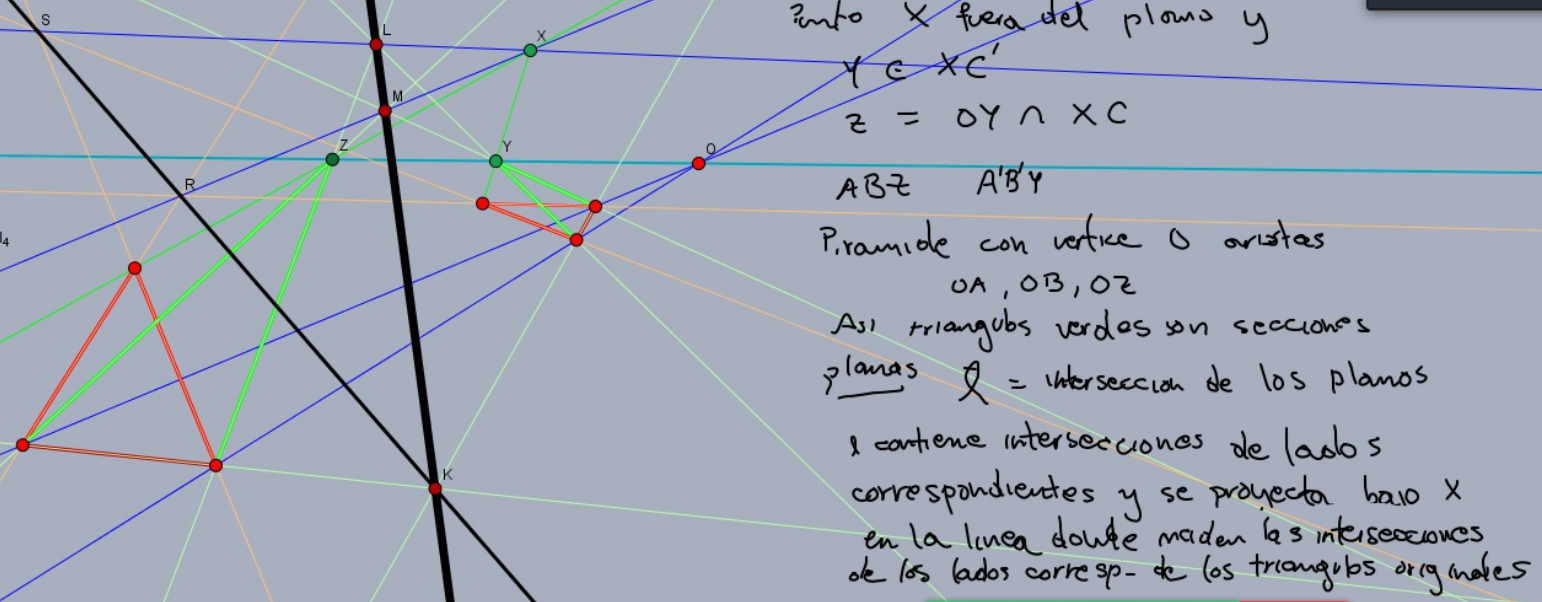 S
L
X
M
Z
Y
O
R
l4
K
Punto X fuera del plano y
Y ∈ XC'
Z = OY ∩ XC
ABZ A'B'Y
Piramide con vertice O aristas
OA, OB, OZ
Asi triangulos verdes son secciones
planas l = interseccion de los planos
l contiene intersecciones de lados
correspondientes y se proyecta bajo X
en la linea donde las intersecciones
de los lados corresp- de los triangulos originales